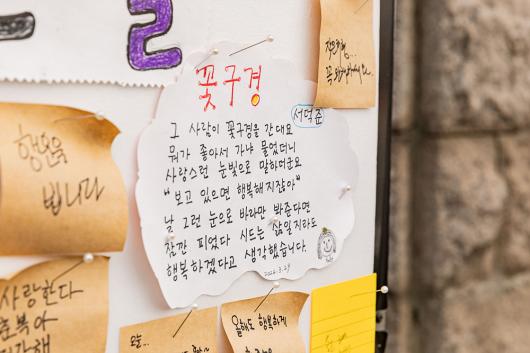 꽃구경
서덕준
그 사람이 꽃구경을 간대요
뭐가 좋아서 가냐 물었더니
사랑스런 눈빛으로 말하더군요
“보고 있으면 행복해지잖아”
날 그런 눈으로 바라만 봐준다면
잠깐 피었다 시드는 삶일지라도
행복하겠다고 생각했습니다.
행운을
빕니다
사랑한다
올해도 행복하게